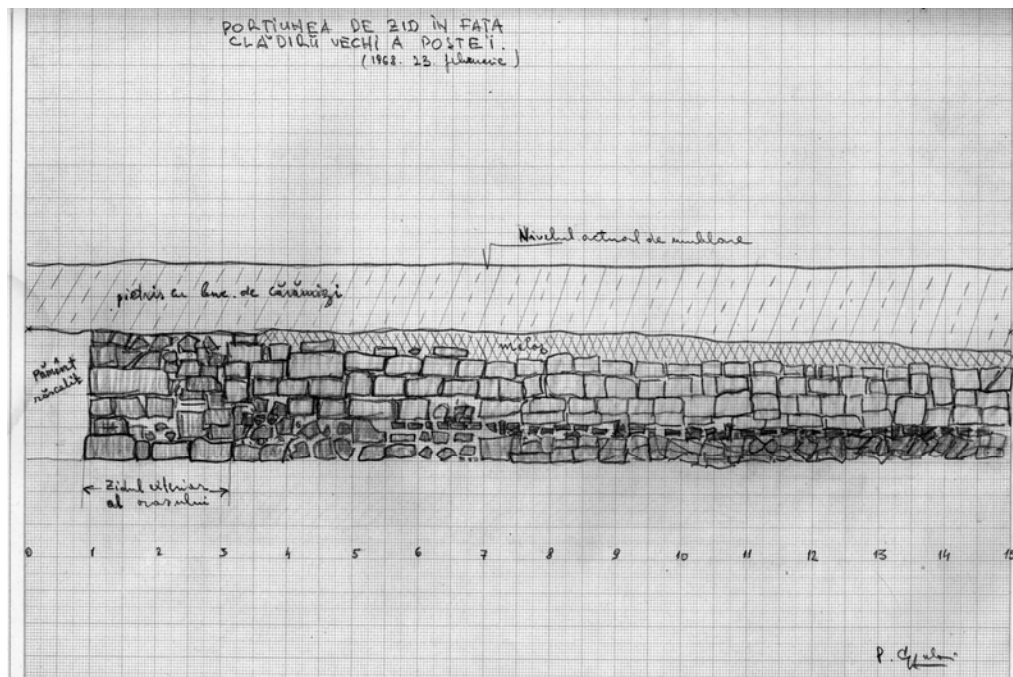 PORȚIUNEA DE ZID ÎN FAȚA
CLĂDIRII VECHI A POȘTEI.
(1968. 23. februarie)
Nivelul actual de umblare
pietriș cu buc. de cărămizi
moloz
Pămînt
răscolit
Zidul exterior
al orașului
0 1 2 3 4 5 6 7 8 9 10 11 12 13 14 15
P.